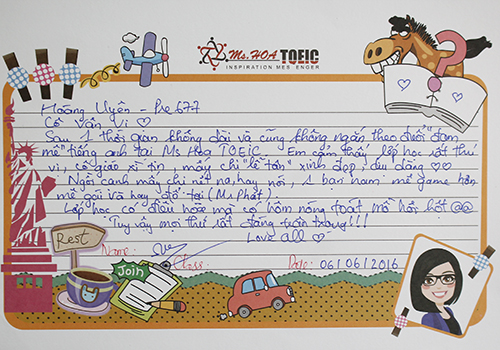 Ms.HOA TOEIC
INSPIRATION MES ENGER
Hoàng Uyên - Pre 677
Cô Vân Vi ♡
Sau 1 thời gian không dài và cũng không ngắn theo đuổi "đam
mê" tiếng anh tại Ms Hoa TOEIC. Em cảm thấy lớp học rất thú
vị, cô giáo xì tin, mấy chị "lễ tân" xinh đẹp, dịu dàng ♡♡
Ngồi cạnh mấy chị rất hay nói, 1 bạn nam mê game hơn
mê gái và hay đó tại (Mr Phát)
Lớp học có điều hoà mà có hôm nóng toát mồ hôi hột @@
Tuy vậy mọi thứ rất đáng trân trọng!!!
Love all ♡
Rest
Name:
Class:
Date: 06/06/2016
Join